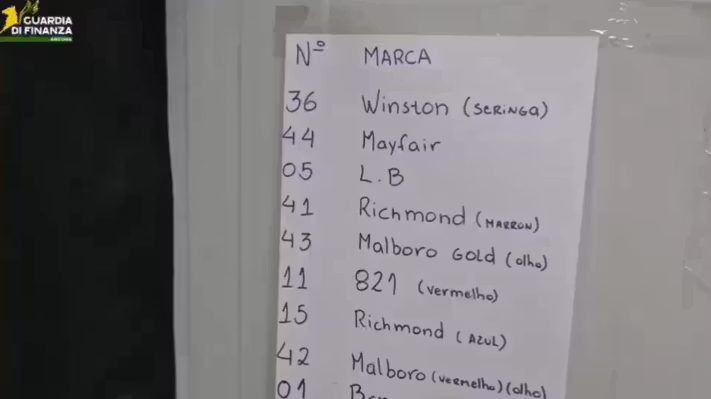 GUARDIA
DI FINANZA
ANCONA
Nº MARCA
36 Winston (SERINGA)
44 Mayfair
05 L.B
41 Richmond (MARRON)
43 Malboro GOLD (olho)
11 821 (vermelho)
15 Richmond (AZUL)
42 Malboro (vermelho) (olho)
01